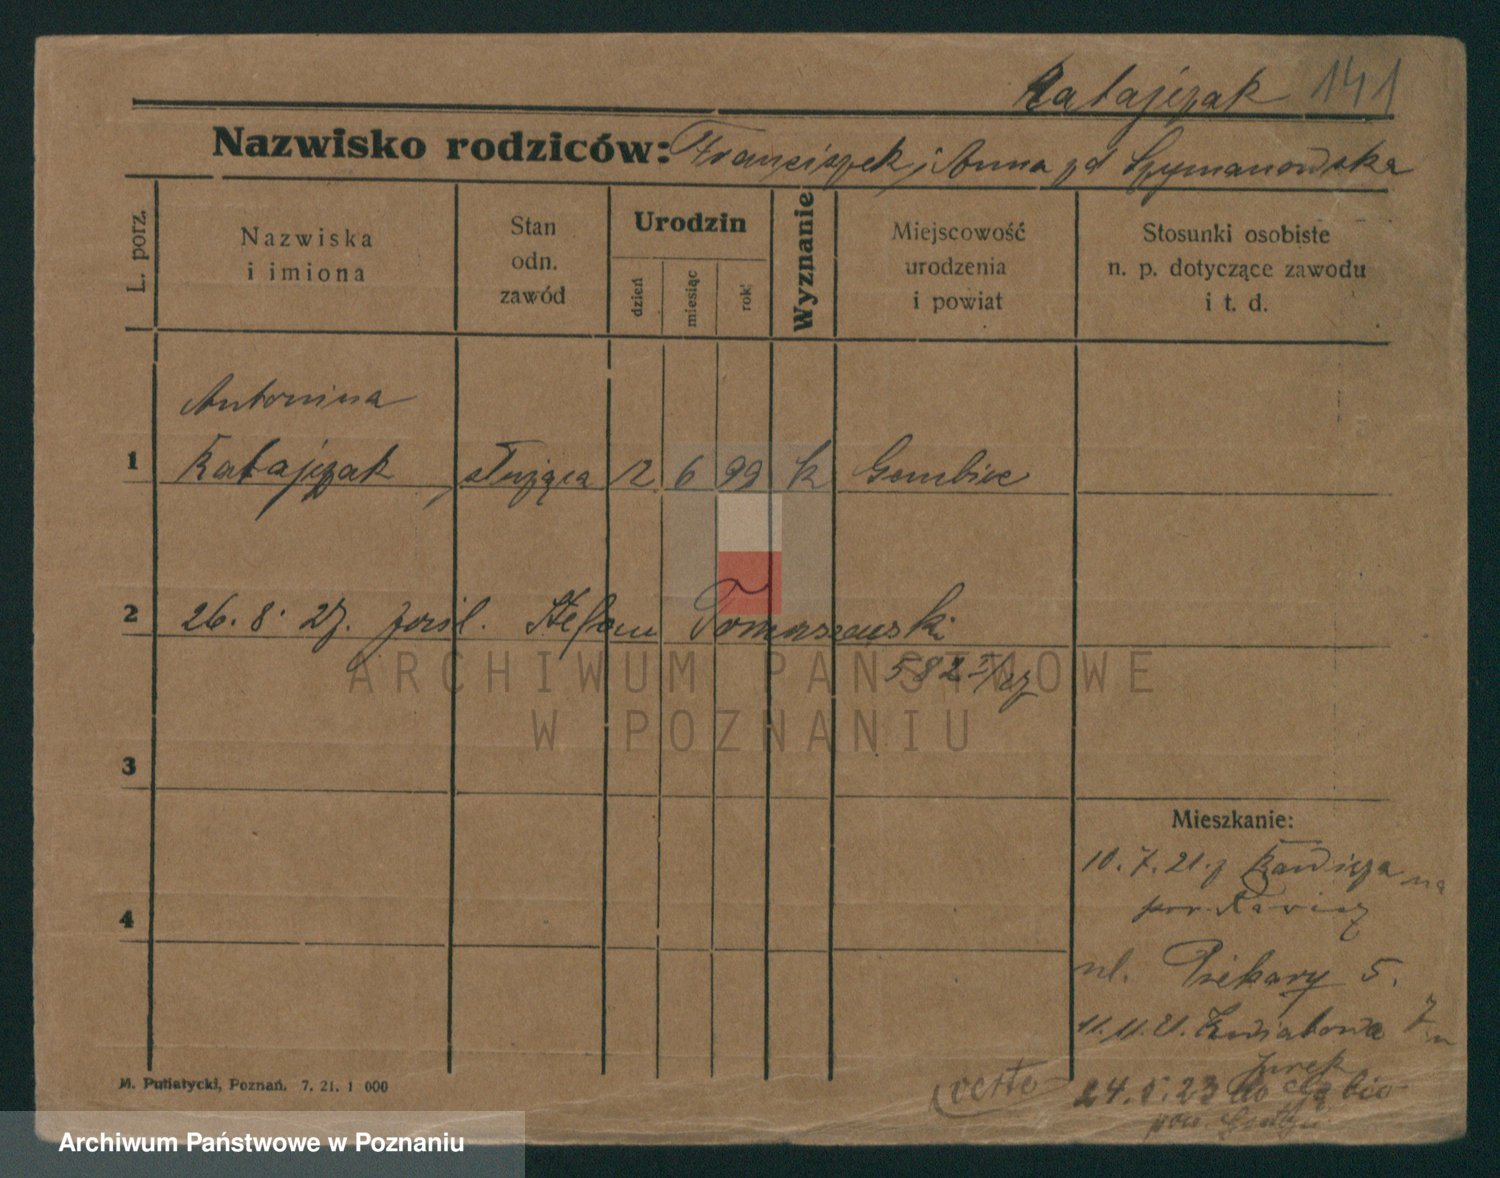 Ratajczak 141
Nazwisko rodziców: Franciszek i Anna zd Szymanowska
L. porz.
Nazwiska
i imiona
Stan
odn.
zawód
Urodzin
dzień
miesiąc
rok
Wyznanie
Miejscowość
urodzenia
i powiat
Stosunki osobiste
n. p. dotyczące zawodu
i t. d.
Antonina
1 Ratajczak służąca 12 6 99 k Gembice
2 26. 8. 27. Stefan Tomaszewski
582
ARCHIWUM PAŃSTWOWE
W POZNANIU
3
Mieszkanie:
10. 7. 21. z na
4
ul. Piekary 5.
11. 11. 21. Kwiatowa 7
24. 5. 23 do
pow.
verte
M. Putiatycki, Poznań. 7. 21. 1 000
Archiwum Państwowe w Poznaniu